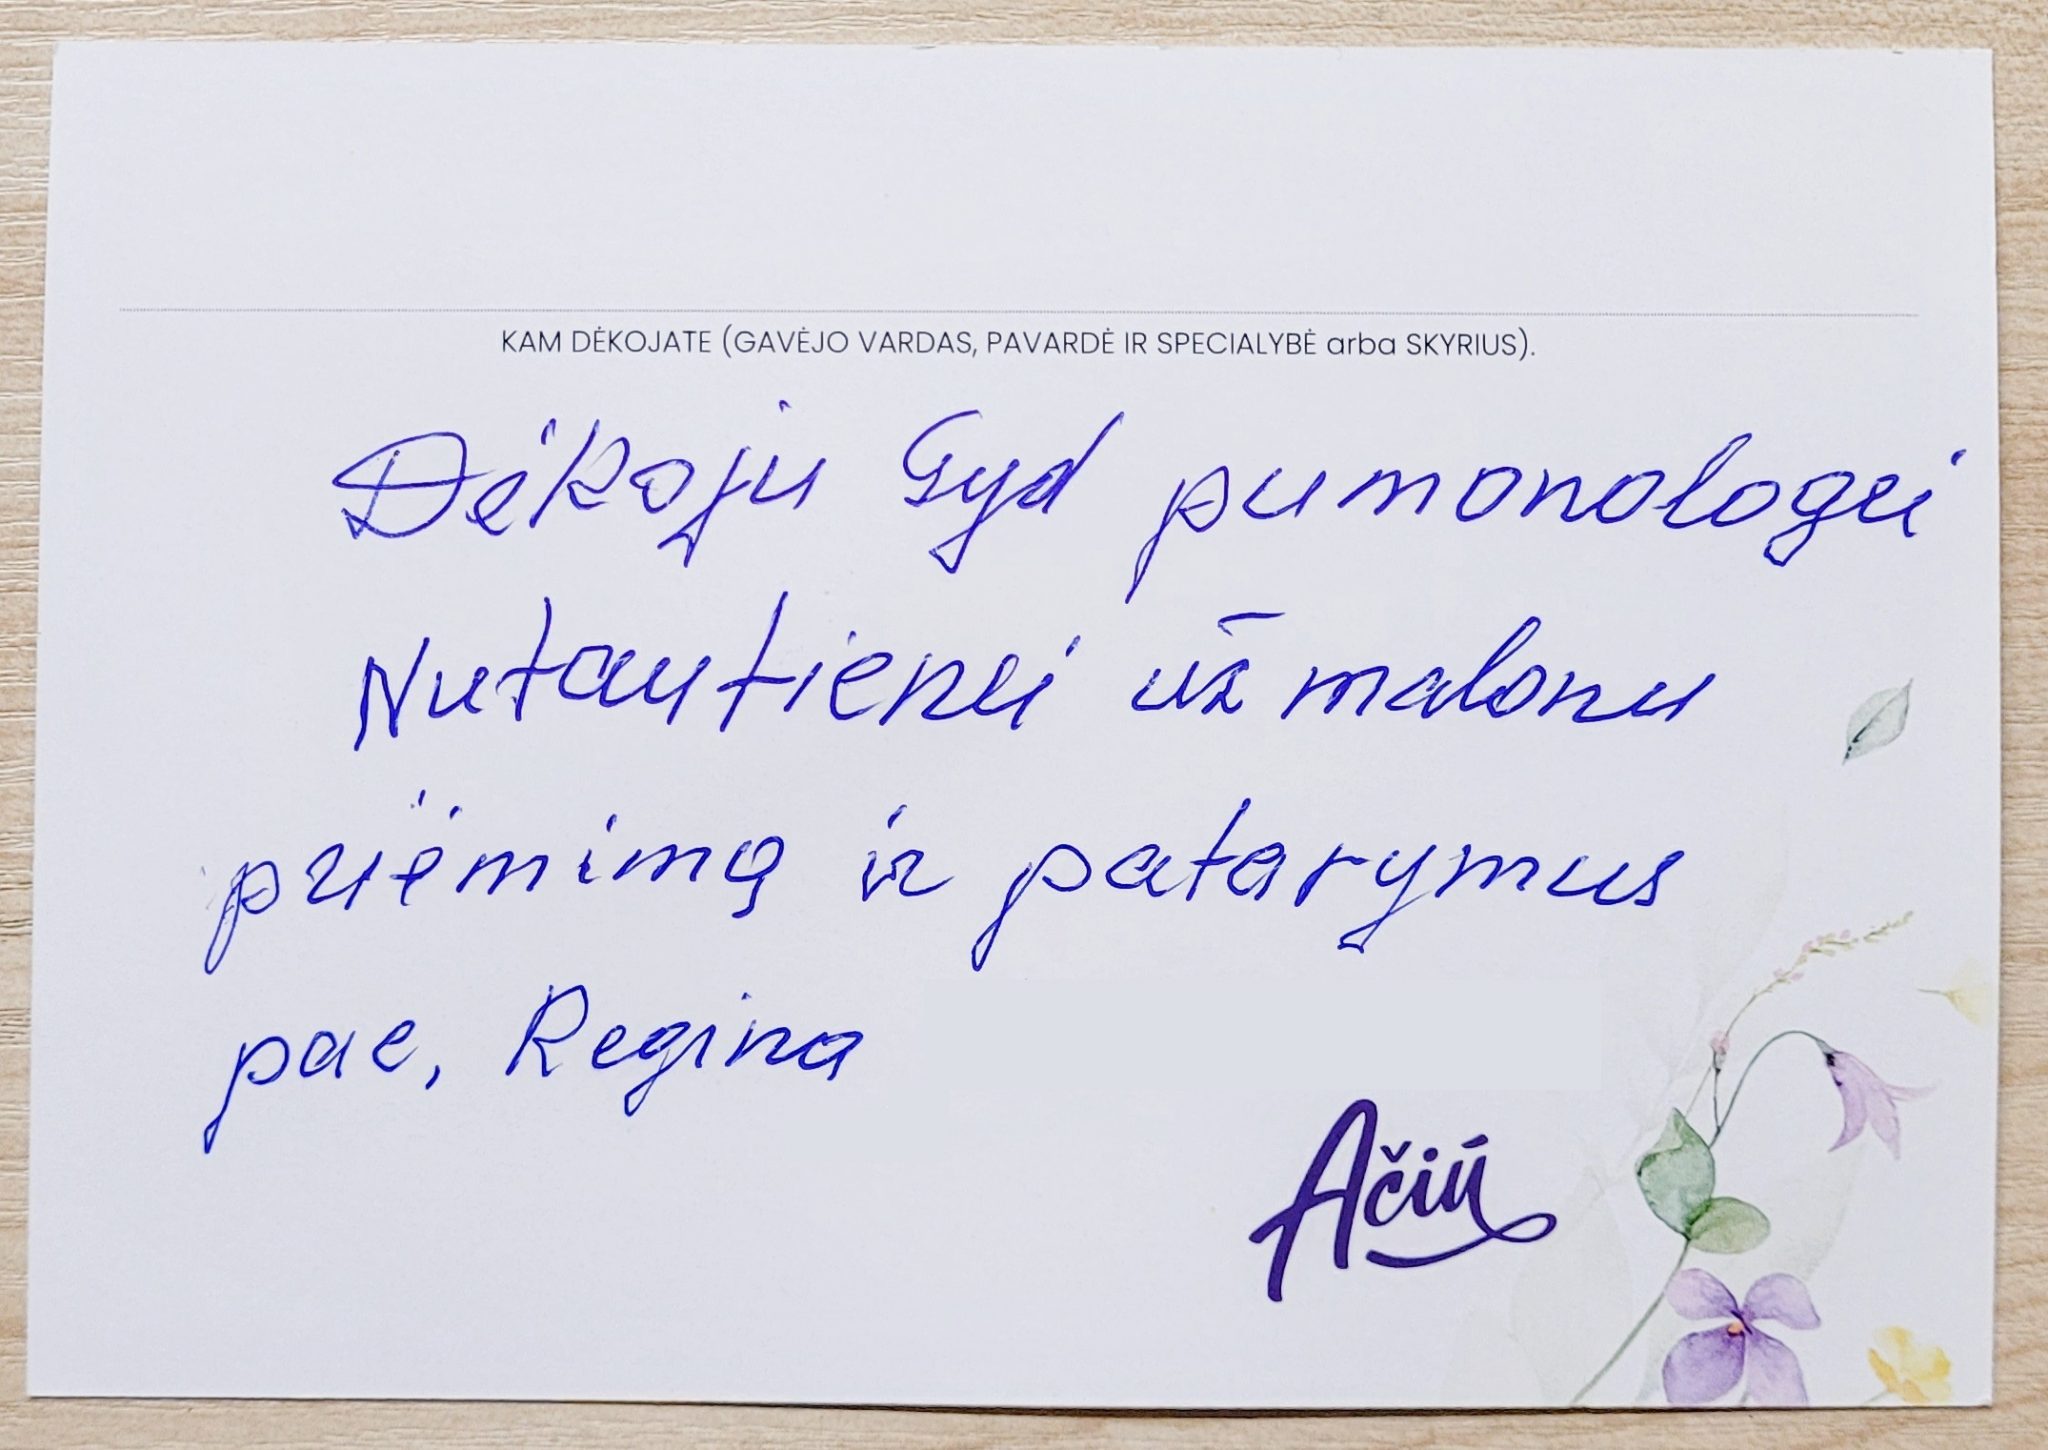 KAM DĖKOJATE (GAVĖJO VARDAS, PAVARDĖ IR SPECIALYBĖ arba SKYRIUS).
Dėkoju Gyd pumonologei
Nutautienei už malonu
priėmimą ir patarymus
pac, Regina
Ačiū